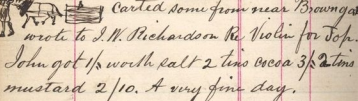 carted some from near Brownga
wrote to J. W. Richardson Re Violin for Jop.
John got 1/- worth salt 2 tins cocoa 3/- 2 tins
mustard 2/10. A very fine day.